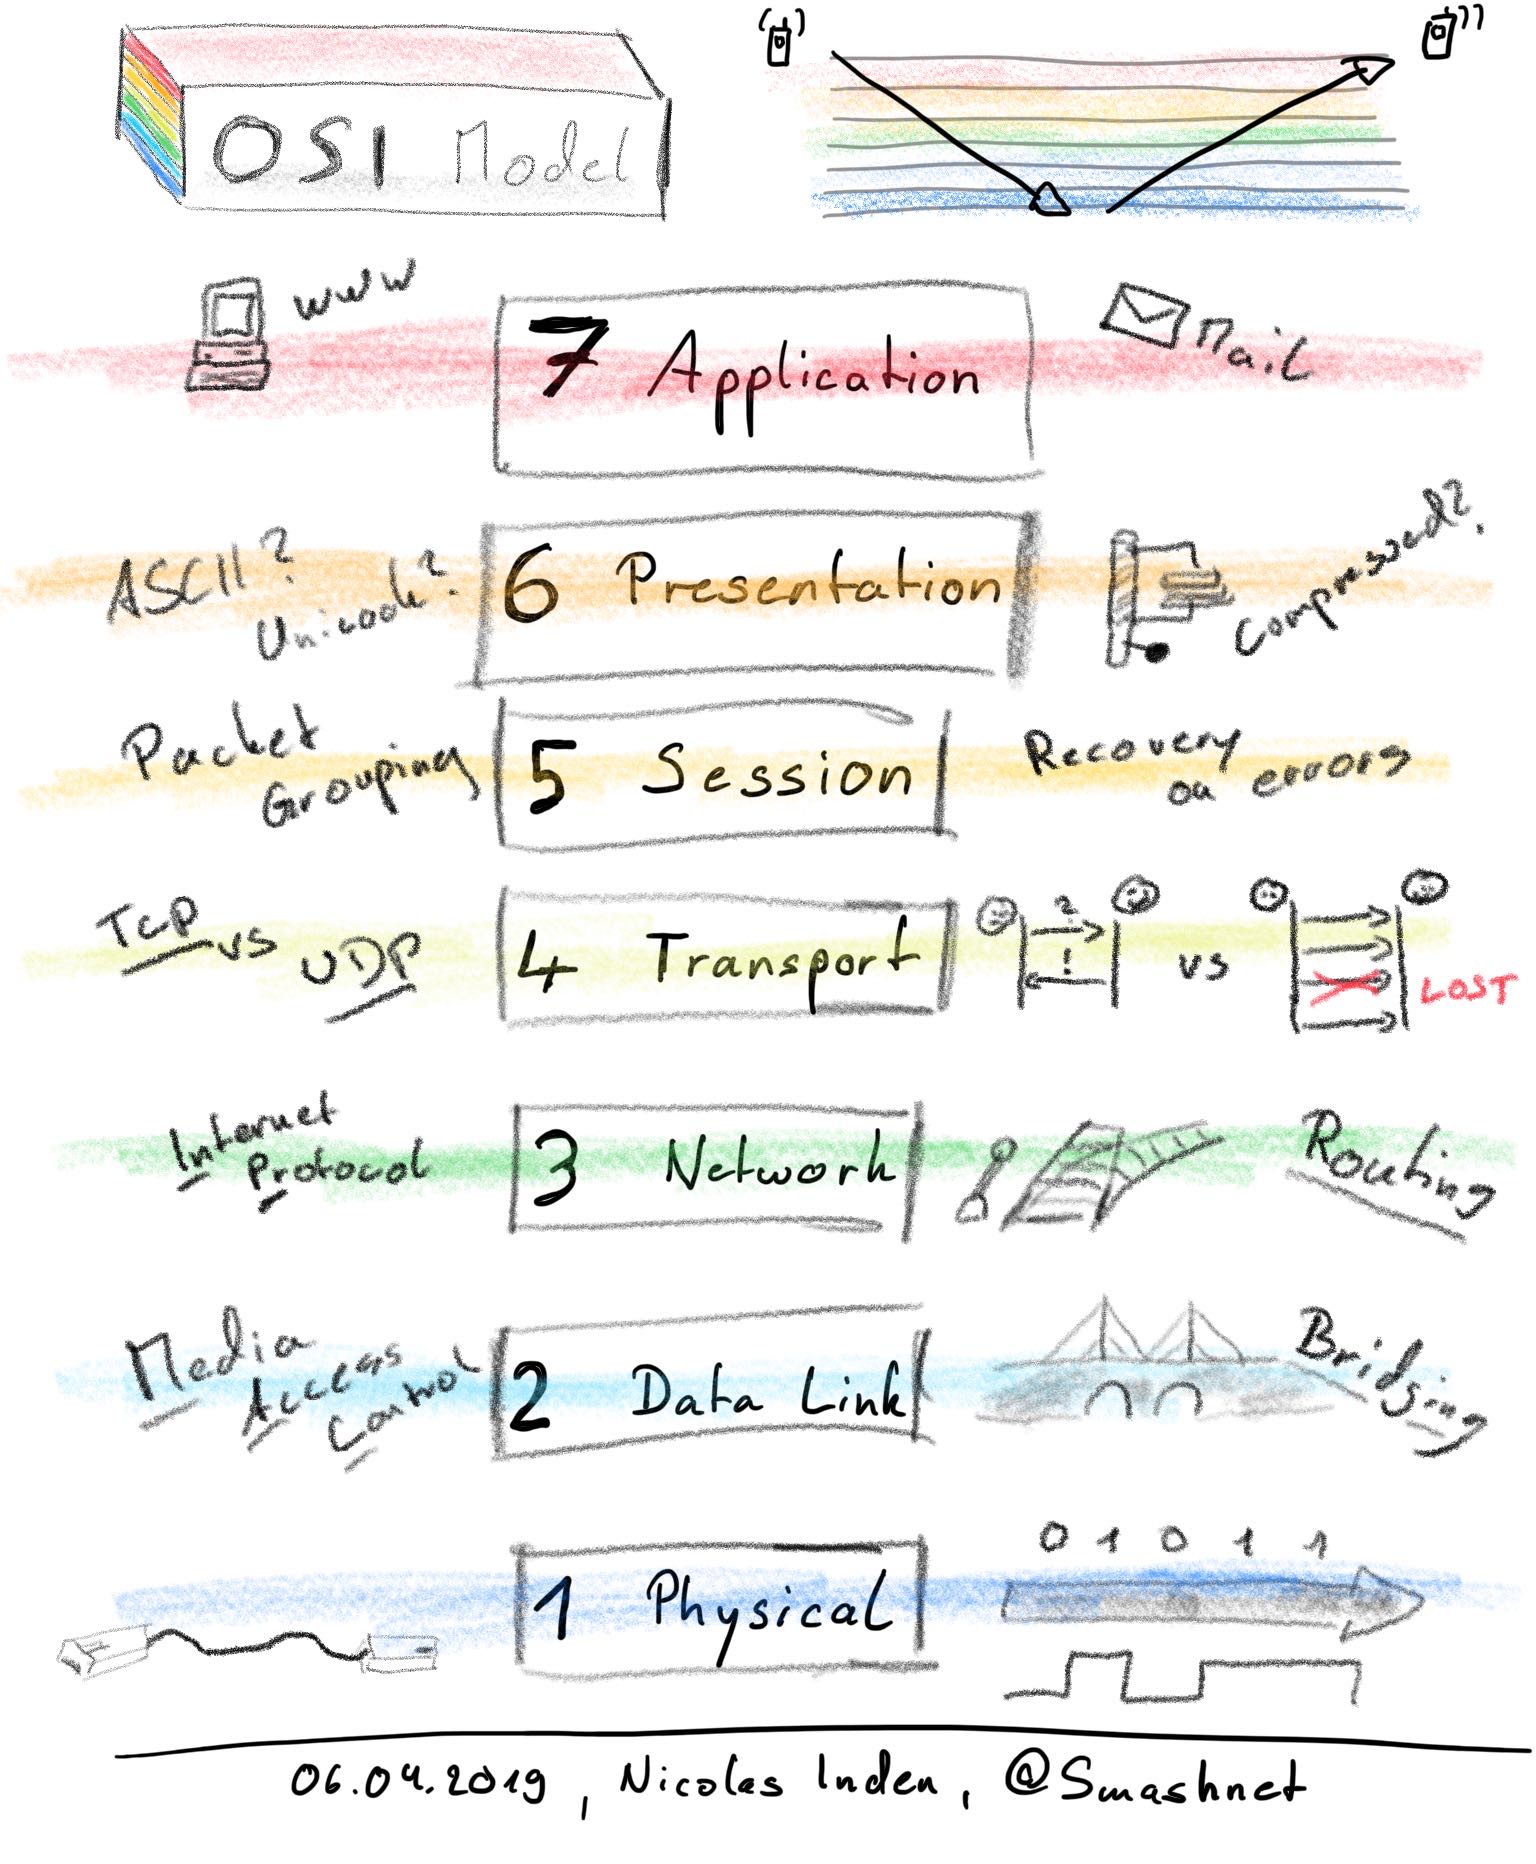 OSI Model
www
7 Application
Mail
ASCII?
Unicode?
6 Presentation
Compressed?
Packet
Grouping
5 Session
Recovery
on errors
TCP
vs
UDP
4 Transport
?
!
vs
LOST
Internet
Protocol
3 Network
Routing
Media
Access
Control
2 Data Link
Bridging
1 Physical
0 1 0 1 1
06.04.2019, Nicolas Inden, @Smashnet